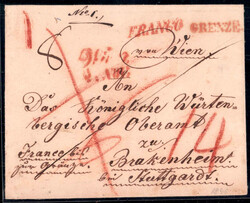 Nro 1.
FRANCO GRENZE
von Wien.
An
Das Königliche Würten-
bergische Oberamt
zu
Brakenheim
bei Stuttgardt.
Franco bis
zur Gränze.
14